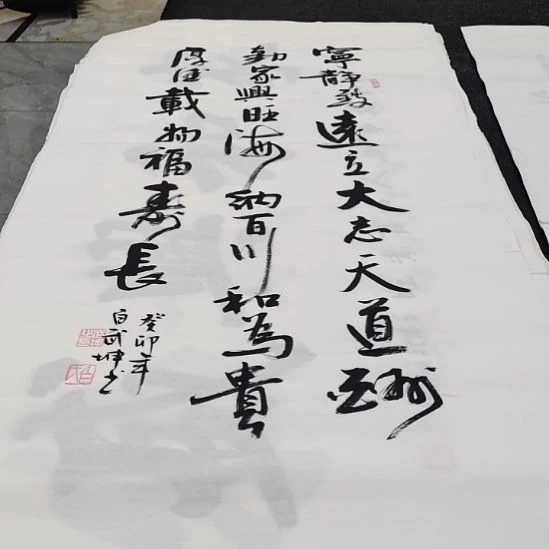 寧静致遠立大志天道酬
勤家興旺海納百川和為貴
厚德載物福寿長
癸卯年
白武坤书